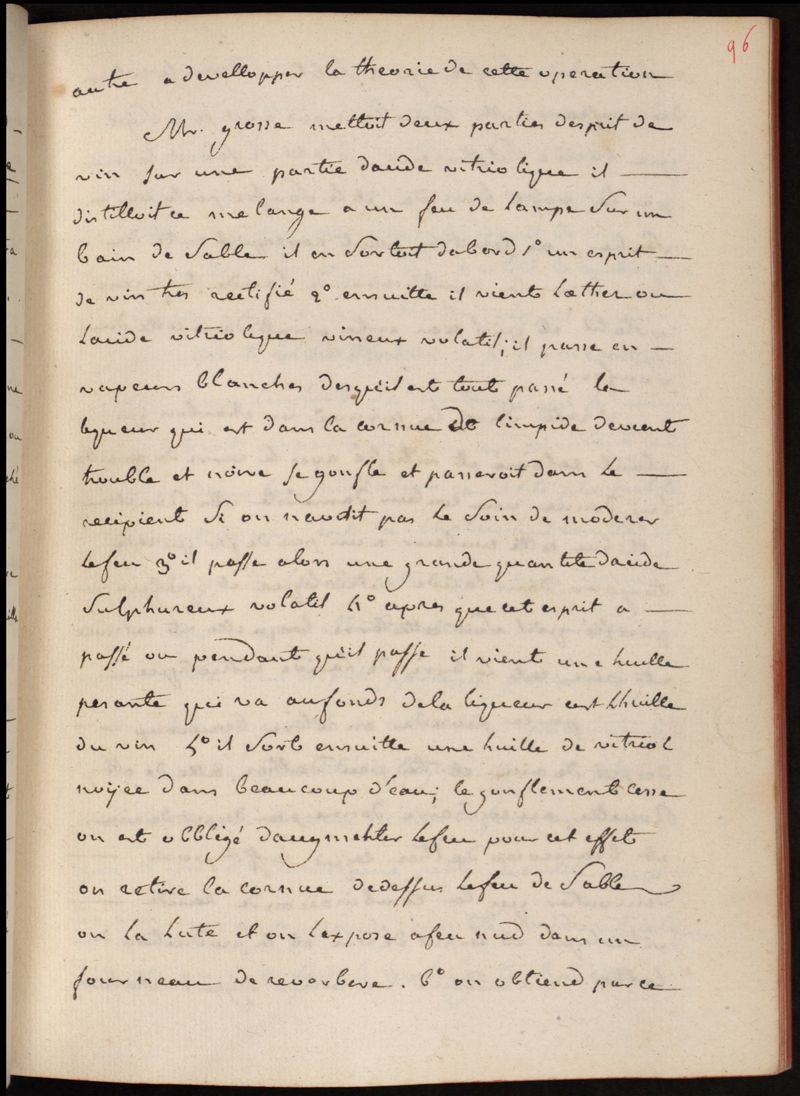 96
autre a devellopper la theorie de cette operation
Mr. grosse mettoit deux parties desprit de
vin sur une partie dacide vitriolique il —
distilloit ce melange a un feu de lampe sur un
bain de sable il en sortoit dabord 1° un esprit —
de vin tres rectifié 2° ensuitte il vient læther ou
lacide vitriolique vineux volatil; il passe en —
vapeurs blanches desquil est tout passé la
liqueur qui est dans la cornue de limpide devient
trouble et noire se gonfle et passeroit dans le —
recipient si on navoit pas le soin de moderer
le feu 3° il passe alors une grande quantité dacide
sulphureux volatil 4° apres que cet esprit a —
passé ou pendant quil passe il vient une huille
pesante qui va au fonds de la liqueur cest lhuille
du vin 5° il sort ensuitte une huille de vitriol
noyée dans beaucoup d'eau; le gonflement cesse
on est obbligé daugmenter le feu pour cet effet
on retire la cornue de dessus le feu de sable
on la lute et on lexpose a feu nud dans un
fourneau de reverbere. 6° on obtiend par ce